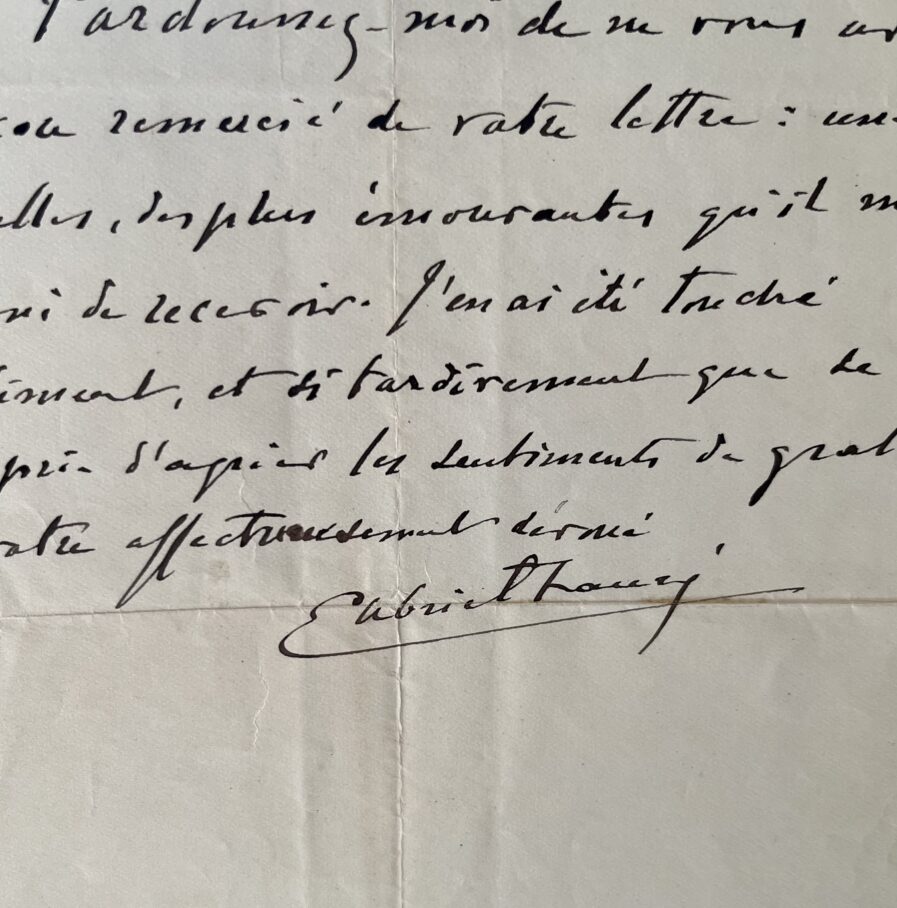 Pardonnez-moi de ne vous av
remercié de votre lettre : une
elles, des plus émouvantes qu'il m
de recevoir. J'en ai été touché
et si tardivement que de
prie d'agréer les sentiments de grat
votre affectueusement dévoué
Gabriel Fauré